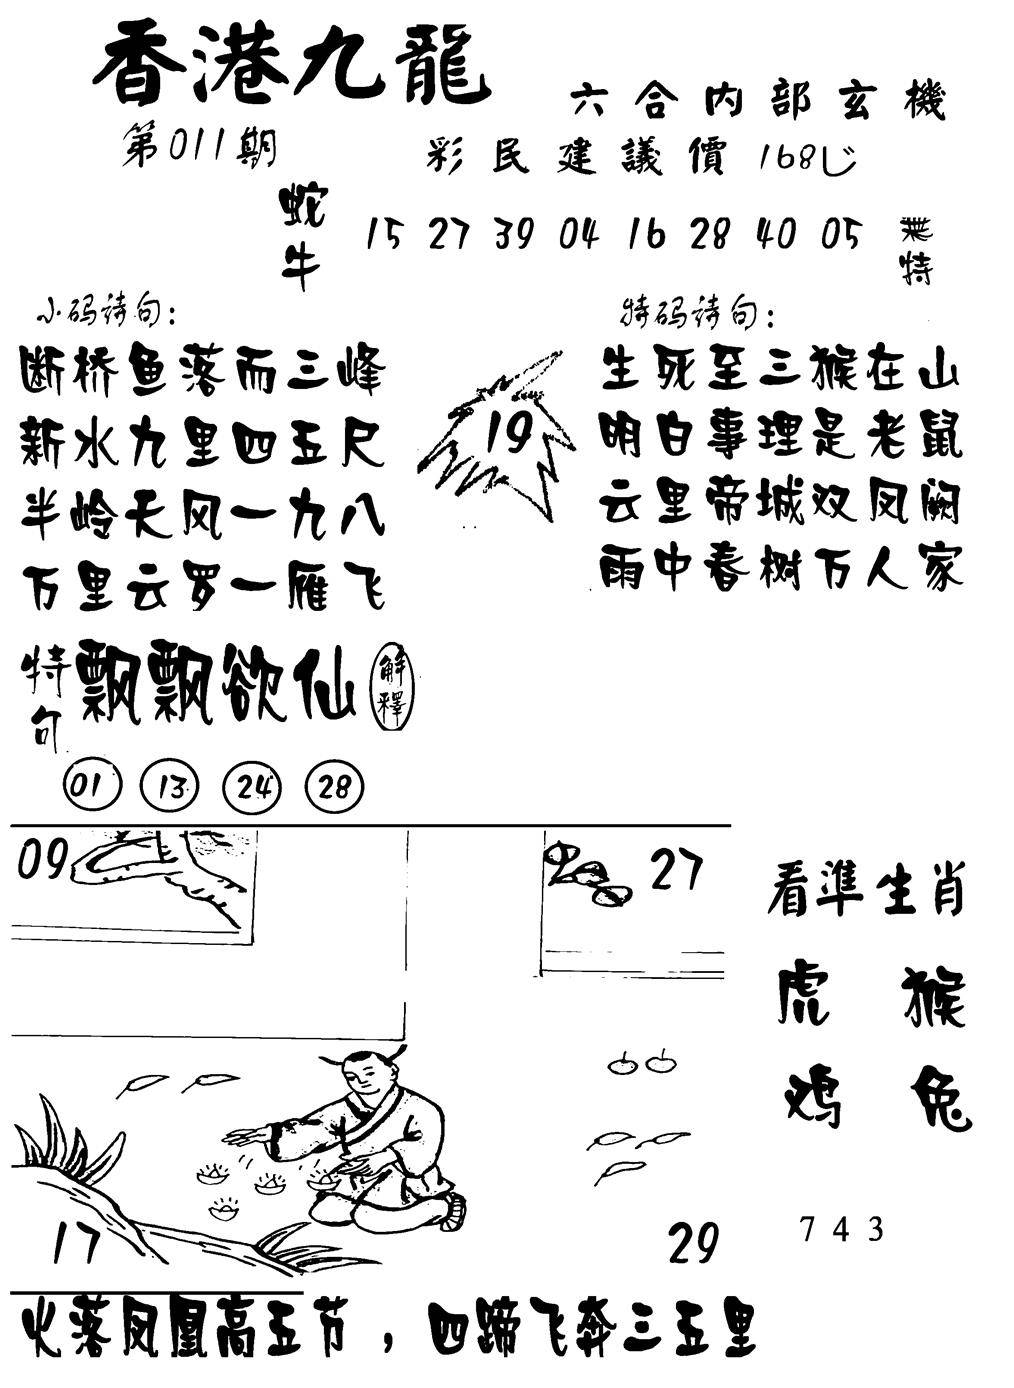 香港九龍
六合内部玄機
第011期
彩民建議價168じ
蛇牛
15 27 39 04 16 28 40 05
特
小码诗句：
断桥鱼落而三峰
新水九里四五尺
半岭天风一九八
万里云罗一雁飞
19
特码诗句：
生死至三猴在山
明白事理是老鼠
云里帝城双凤阙
雨中春树万人家
特句
飘飘欲仙
解釋
01 13 24 28
09
27
看準生肖
虎 猴
鸡 兔
17
29
743
火落凤凰高五节，四蹄飞奔三五里